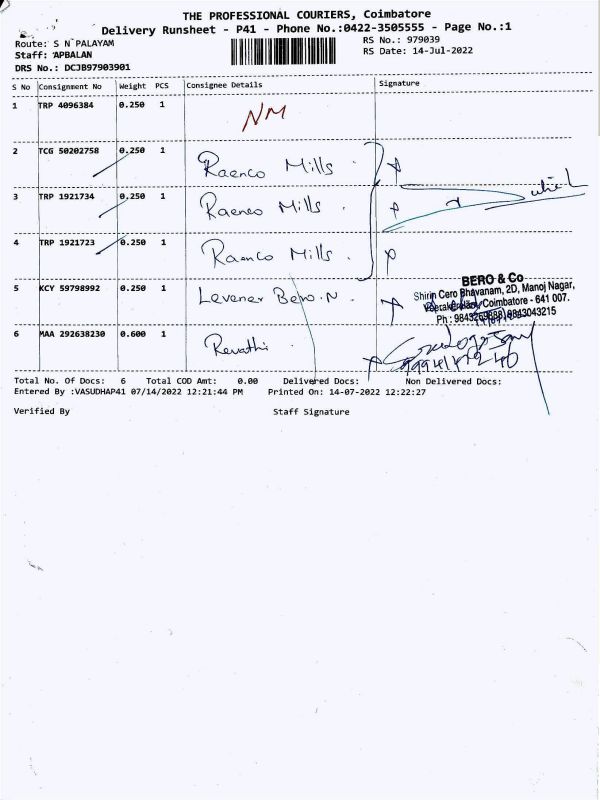 THE PROFESSIONAL COURIERS, Coimbatore
Delivery Runsheet - P41 - Phone No.:0422-3505555 - Page No.:1
Route: S N PALAYAM RS No.: 979039
Staff: APBALAN RS Date: 14-Jul-2022
DRS No.: DCJB97903901
S No Consignment No Weight PCS Consignee Details Signature
1 TRP 4096384 0.250 1 NM
2 TCG 50202758 0.250 1 Raenco Mills
3 TRP 1921734 0.250 1 Raenco Mills .
4 TRP 1921723 0.250 1 Raenco Mills .
5 KCY 59798992 0.250 1
BERO & Co
Shirin Cero Bhavanam, 2D, Manoj Nagar,
Coimbatore - 641 007.
9843043215
6 MAA 292638230 0.600 1 Revathi
Total No. Of Docs: 6 Total COD Amt: 0.00 Delivered Docs: Non Delivered Docs:
Entered By :VASUDHAP41 07/14/2022 12:21:44 PM Printed On: 14-07-2022 12:22:27
Verified By Staff Signature